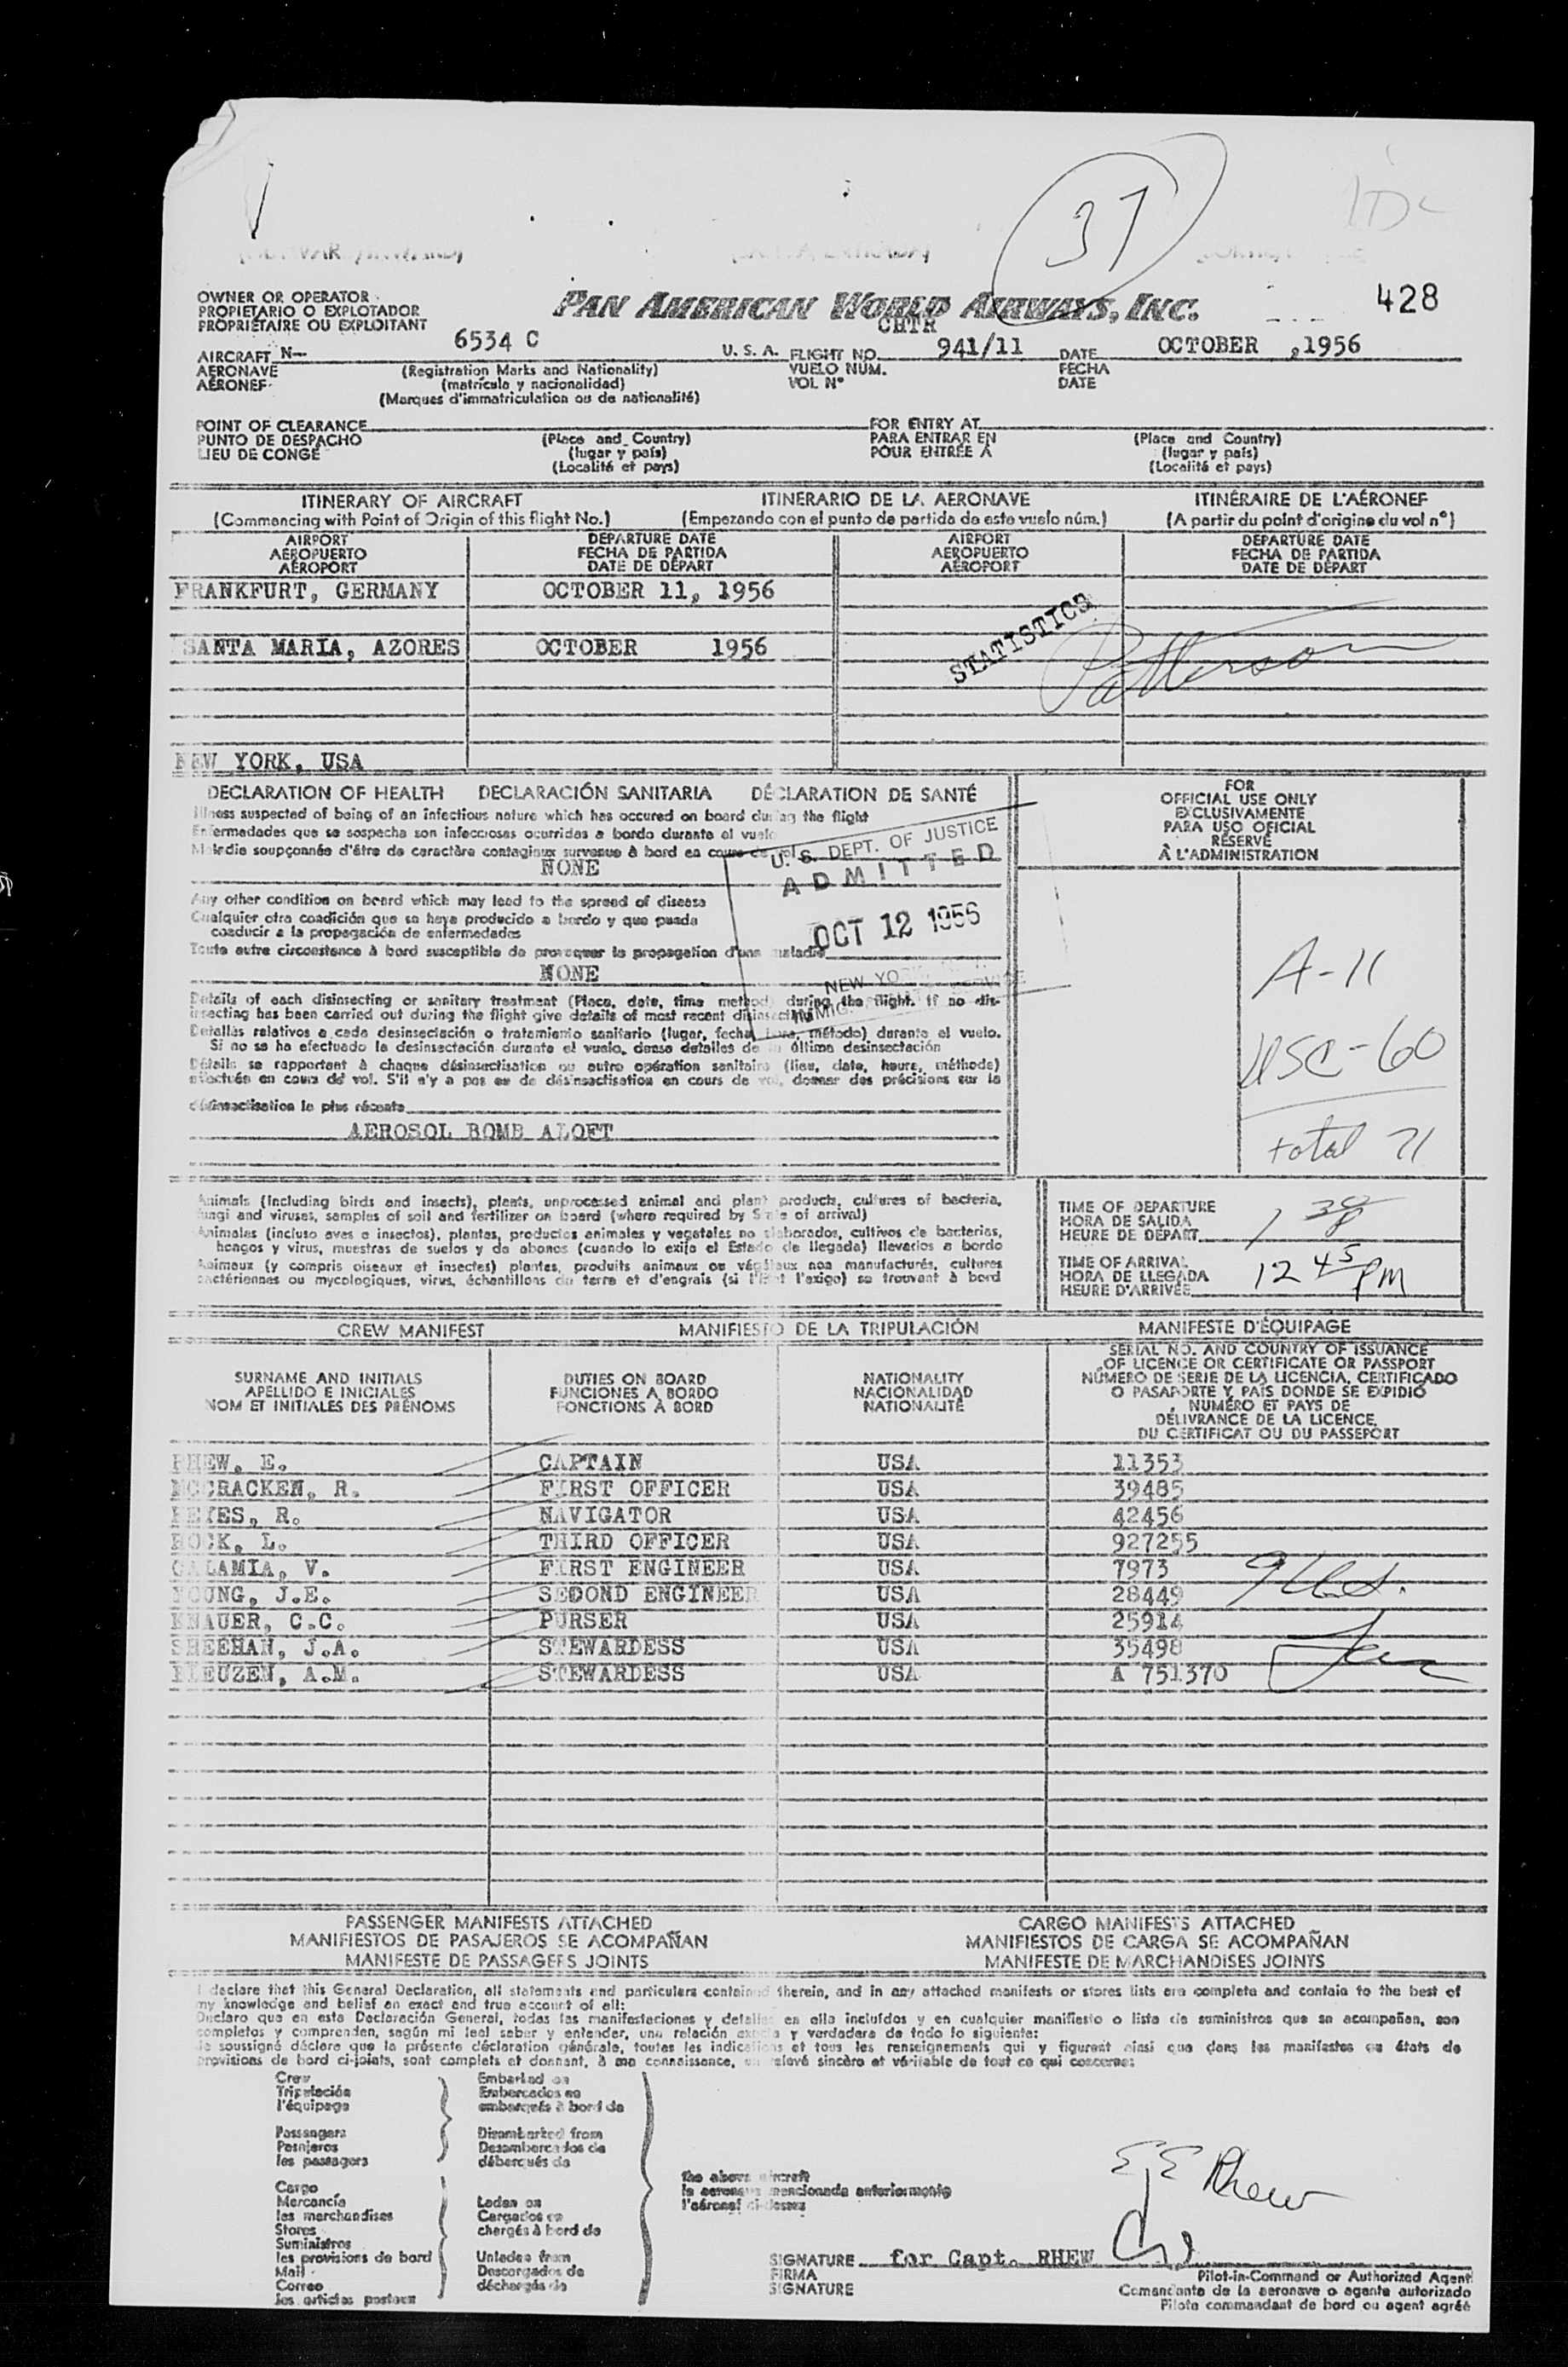 37
428
OWNER OR OPERATOR
PROPIETARIO O EXPLOTADOR
PROPRIÉTAIRE OU EXPLOITANT
PAN AMERICAN WORLD AIRWAYS, INC.
CHTR
AIRCRAFT N— 6534 C U. S. A. FLIGHT NO. 941/11 DATE OCTOBER ,1956
AERONAVE (Registration Marks and Nationality) VUELO NÚM. FECHA
AÉRONEF (matrícula y nacionalidad) VOL Nº DATE
(Marques d'immatriculation ou de nationalité)
POINT OF CLEARANCE FOR ENTRY AT
PUNTO DE DESPACHO (Place and Country) PARA ENTRAR EN (Place and Country)
LIEU DE CONGÉ (lugar y país) POUR ENTRÉE À (lugar y país)
(Localité et pays) (Localité et pays)
ITINERARY OF AIRCRAFT ITINERARIO DE LA AERONAVE ITINÉRAIRE DE L'AÉRONEF
(Commencing with Point of Origin of this flight No.) (Empezando con el punto de partida de este vuelo núm.) (A partir du point d'origine du vol nº)
AIRPORT DEPARTURE DATE AIRPORT DEPARTURE DATE
AEROPUERTO FECHA DE PARTIDA AEROPUERTO FECHA DE PARTIDA
AÉROPORT DATE DE DÉPART AÉROPORT DATE DE DÉPART
FRANKFURT, GERMANY OCTOBER 11, 1956
STATISTICS
Patterson
SANTA MARIA, AZORES OCTOBER 1956
NEW YORK, USA
DECLARATION OF HEALTH DECLARACIÓN SANITARIA DÉCLARATION DE SANTÉ
Illness suspected of being of an infectious nature which has occured on board during the flight
Enfermedades que se sospecha son infecciosas ocurridas a bordo durante el vuelo
Maladie soupçonnée d'être de caractère contagieux survenue à bord en cours de vol
NONE
Any other condition on board which may lead to the spread of disease
Cualquier otra condición que se haya producido a bordo y que pueda
conducir a la propagación de enfermedades
Toute autre circonstance à bord susceptible de provoquer la propagation d'une maladie
NONE
U. S. DEPT. OF JUSTICE
ADMITTED
OCT 12 1956
NEW YORK
Details of each disinsecting or sanitary treatment (Place, date, time method) during the flight. If no dis-
insecting has been carried out during the flight give details of most recent disinsecting
Detalles relativos a cada desinsectación o tratamiento sanitario (lugar, fecha, hora, método) durante el vuelo.
Si no se ha efectuado la desinsectación durante el vuelo, dense detalles de su última desinsectación
Détails se rapportant à chaque désinsectisation ou autre opération sanitaire (lieu, date, heure, méthode)
effectuée en cours de vol. S'il n'y a pas eu de désinsectisation en cours de vol, donner des précisions sur la
désinsectisation la plus récente
AEROSOL BOMB ALOFT
FOR
OFFICIAL USE ONLY
EXCLUSIVAMENTE
PARA USO OFICIAL
RÉSERVÉ
À L'ADMINISTRATION
A-11
USC-60
total 71
Animals (Including birds and insects), plants, unprocessed animal and plant products, cultures of bacteria,
fungi and viruses, samples of soil and fertilizer on board (where required by State of arrival)
Animales (incluso aves e insectos), plantas, productos animales y vegetales no elaborados, cultivos de bacterias,
hongos y virus, muestras de suelos y de abonos (cuando lo exija el Estado de llegada) llevarlos a bordo
Animaux (y compris oiseaux et insectes) plantes, produits animaux ou végétaux non manufacturés, cultures
bactériennes ou mycologiques, virus, échantillons de terre et d'engrais (si l'État l'exige) se trouvant à bord
TIME OF DEPARTURE
HORA DE SALIDA
HEURE DE DÉPART
TIME OF ARRIVAL
HORA DE LLEGADA
HEURE D'ARRIVÉE
12 45 PM
CREW MANIFEST MANIFIESTO DE LA TRIPULACIÓN MANIFESTE D'ÉQUIPAGE
SURNAME AND INITIALS
APELLIDO E INICIALES
NOM ET INITIALES DES PRÉNOMS
DUTIES ON BOARD
FUNCIONES A BORDO
FONCTIONS À BORD
NATIONALITY
NACIONALIDAD
NATIONALITÉ
SERIAL NO. AND COUNTRY OF ISSUANCE
OF LICENCE OR CERTIFICATE OR PASSPORT
NÚMERO DE SERIE DE LA LICENCIA, CERTIFICADO
O PASAPORTE Y PAÍS DONDE SE EXPIDIÓ
NUMÉRO ET PAYS DE
DÉLIVRANCE DE LA LICENCE,
DU CERTIFICAT OU DU PASSEPORT
RHEW, E. CAPTAIN USA 11353
MCCRACKEN, R. FIRST OFFICER USA 39485
REYES, R. NAVIGATOR USA 42456
ROCK, L. THIRD OFFICER USA 927255
CALAMIA, V. FIRST ENGINEER USA 7973
YOUNG, J.E. SECOND ENGINEER USA 28449
KNAUER, C.C. PURSER USA 25914
SHEEHAN, J.A. STEWARDESS USA 35498
A.M. STEWARDESS USA A 751370
PASSENGER MANIFESTS ATTACHED CARGO MANIFESTS ATTACHED
MANIFIESTOS DE PASAJEROS SE ACOMPAÑAN MANIFIESTOS DE CARGA SE ACOMPAÑAN
MANIFESTE DE PASSAGERS JOINTS MANIFESTE DE MARCHANDISES JOINTS
I declare that this General Declaration, all statements and particulars contained therein, and in any attached manifests or stores lists are complete and contain to the best of
my knowledge and belief an exact and true account of all:
Declaro que en esta Declaración General, todas las manifestaciones y detalles en ella incluídos y en cualquier manifiesto o lista de suministros que se acompañan, son
completos y comprenden, según mi leal saber y entender, una relación exacta y verdadera de todo lo siguiente:
Je soussigné déclare que la présente déclaration générale, toutes les indications et tous les renseignements qui y figurent ainsi que dans les manifestes ou états de
provisions de bord ci-joints, sont complets et donnent, à ma connaissance, un relevé sincère et véritable de tout ce qui concerne:
Crew
Tripulación
l'équipage
Passengers
Pasajeros
les passagers
Embarked on
Embarcados en
embarqués à bord de
Disembarked from
Desembarcados de
débarqués de
Cargo
Mercancía
les marchandises
Stores
Suministros
les provisions de bord
Mail
Correo
les articles postaux
Laden on
Cargados en
chargés à bord de
Unladen from
Descargados de
déchargés de
the above aircraft
la aeronave mencionada anteriormente
l'aéronef ci-dessus
E E Rhew
SIGNATURE for Capt. RHEW
FIRMA
SIGNATURE
Pilot-in-Command or Authorized Agent
Comandante de la aeronave o agente autorizado
Pilote commandant de bord ou agent agréé